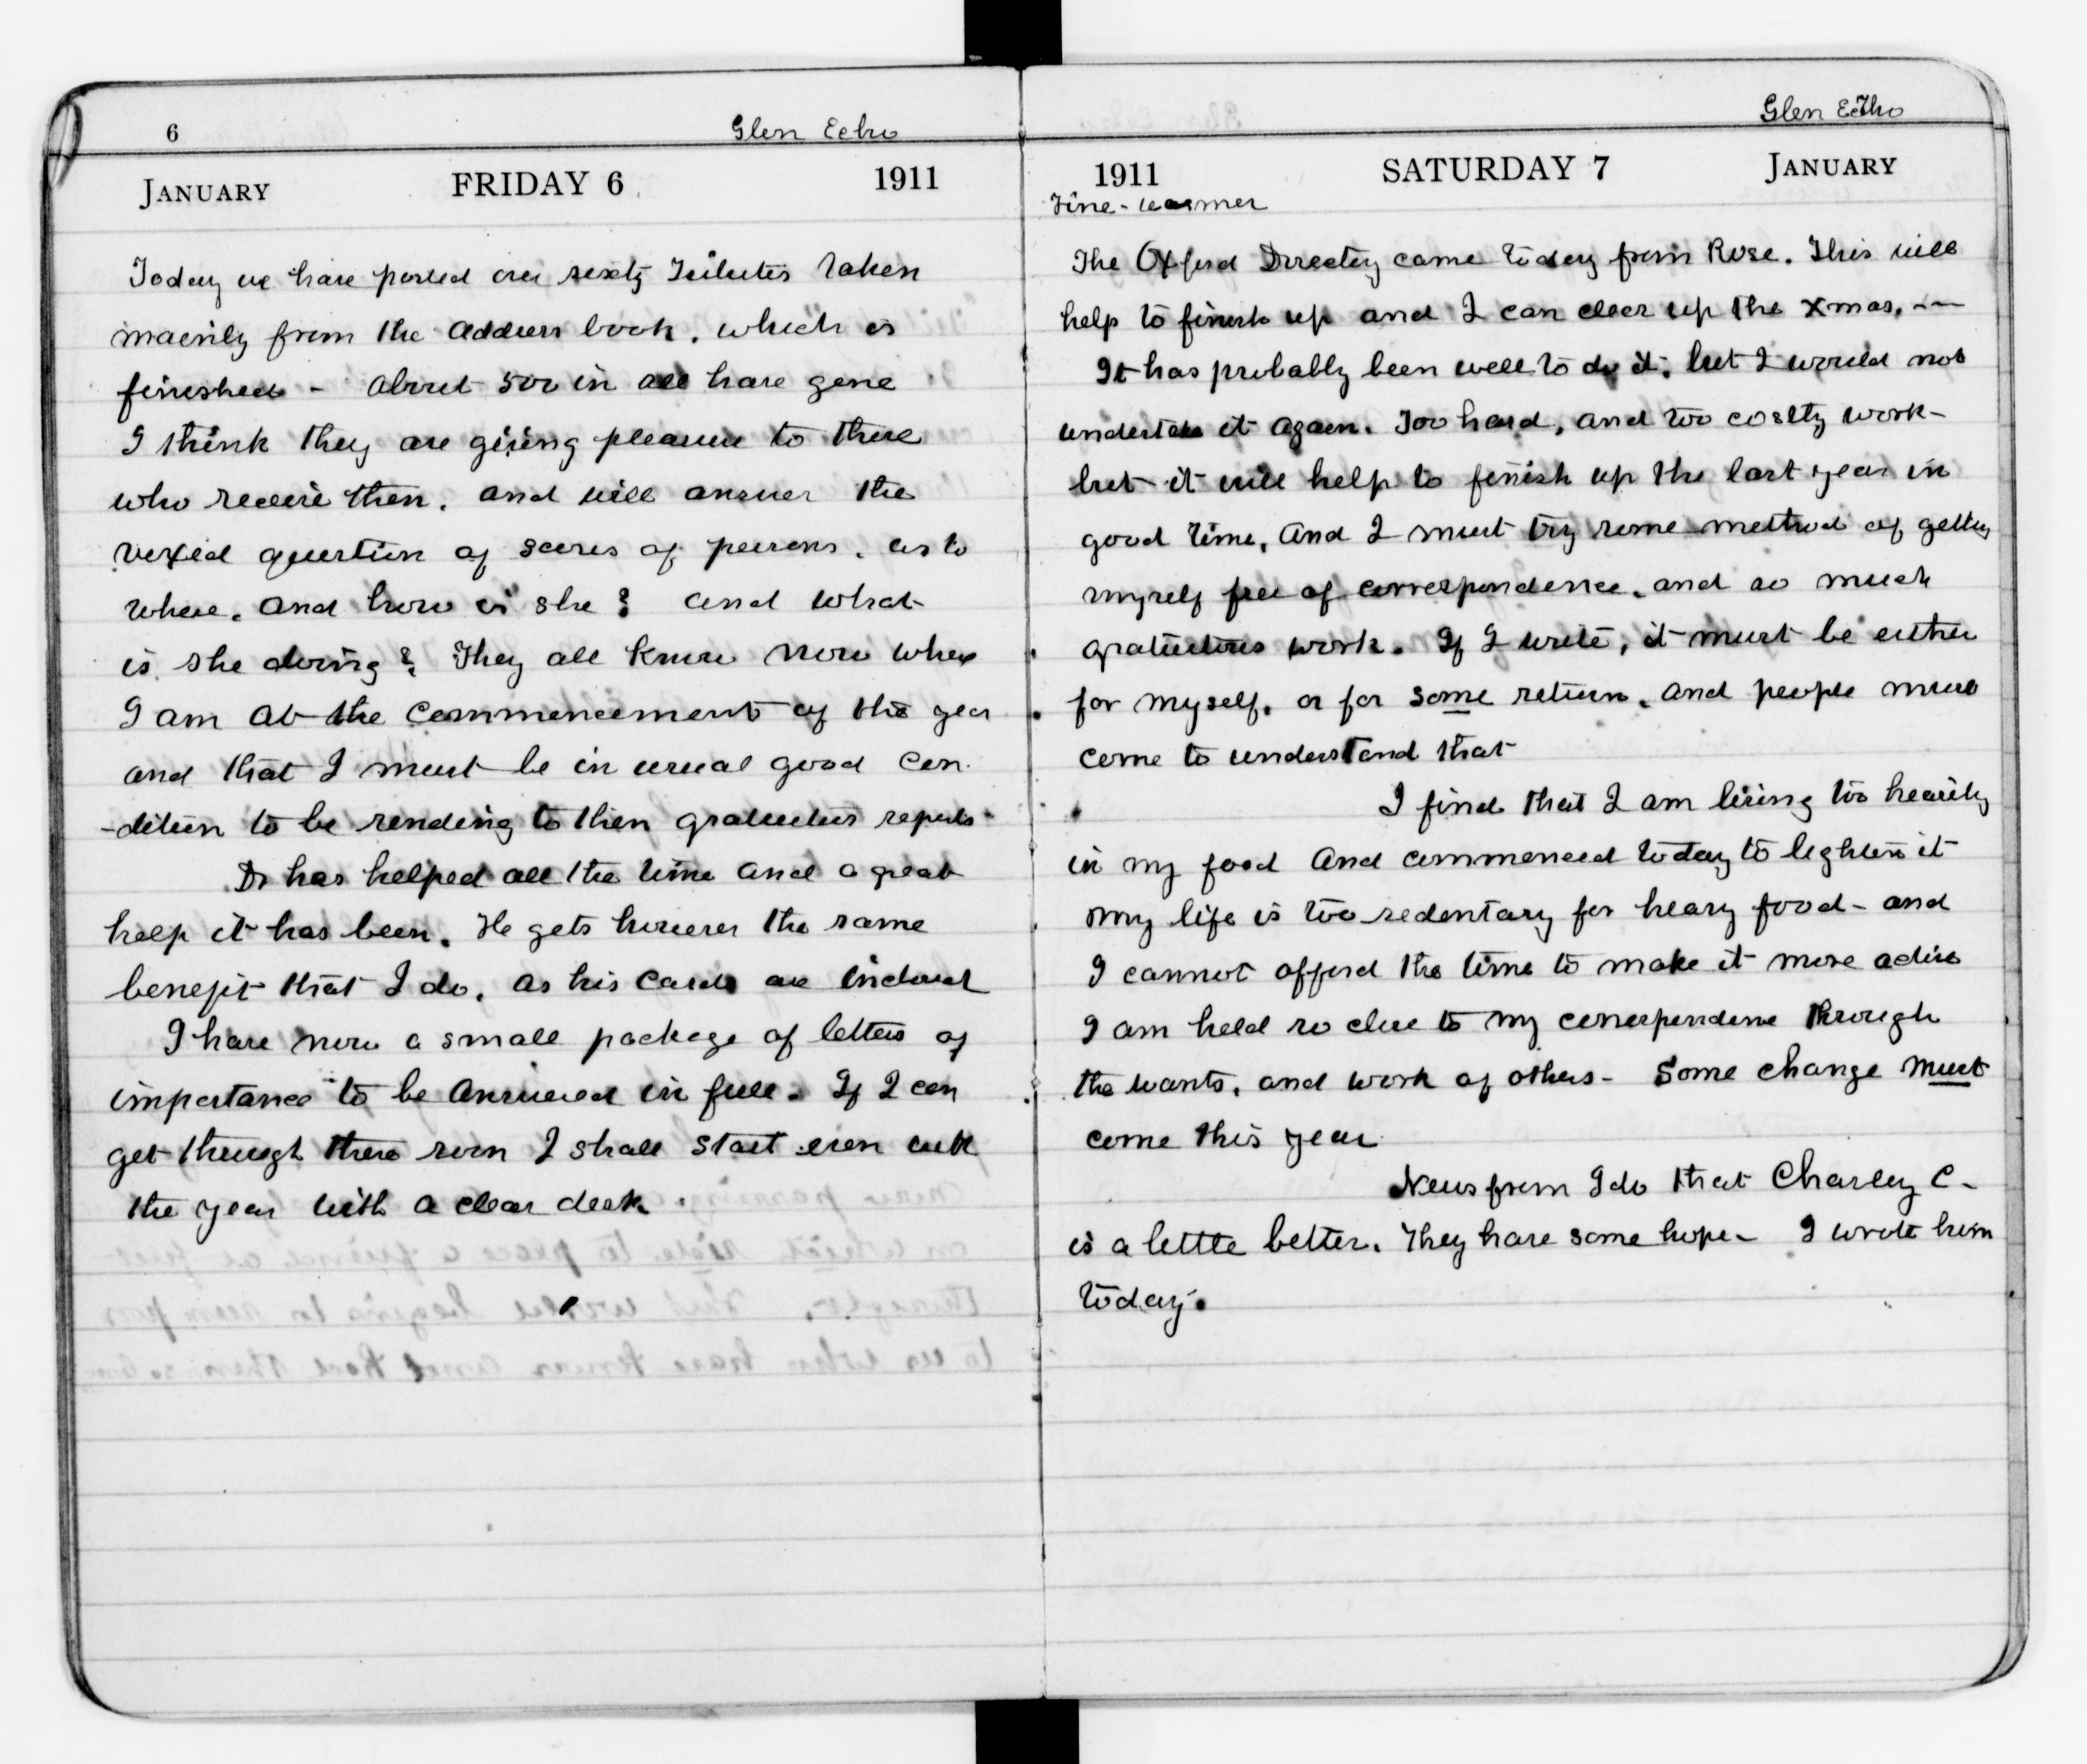 6
Glen Echo
JANUARY FRIDAY 6 1911
Today we have posted over sixty Tributes taken
mainly from the address book, which is
finished - about 500 in all have gone
I think they are giving pleasure to those
who receive them, and will answer the
vexed question of scores of persons, as to
where, and how is she? and what
is she doing? They all know now where
I am at the commencement of the year
and that I must be in usual good con
-dition to be sending to them gratuitous reports-
Dr has helped all the time and a great
help it has been. He gets however the same
benefit that I do, as his cards are inclosed
I have now a small package of letters of
importance to be answered in full. If I can
get through these soon I shall start even with
the year with a clear desk.
Glen Echo
1911 SATURDAY 7 JANUARY
Fine - warmer
The Oxford Directory came today from Rose. This will
help to finish up and I can clear up the Xmas. —
It has probably been well to do it, but I would not
undertake it again. Too hard, and too costly work-
but it will help to finish up the last year in
good time, and I must try some method of getting
myself free of correspondence, and so much
gratuitous work. If I write, it must be either
for myself, or for some return, and people must
come to understand that
I find that I am living too heavily
in my food and commenced today to lighten it
My life is too sedentary for heavy food - and
I cannot afford the time to make it more active
I am held so close to my correspondence through
the wants, and work of others - Some change must
come this year
News from Ida that Charley C -
is a little better. They have some hope - I wrote him
today.